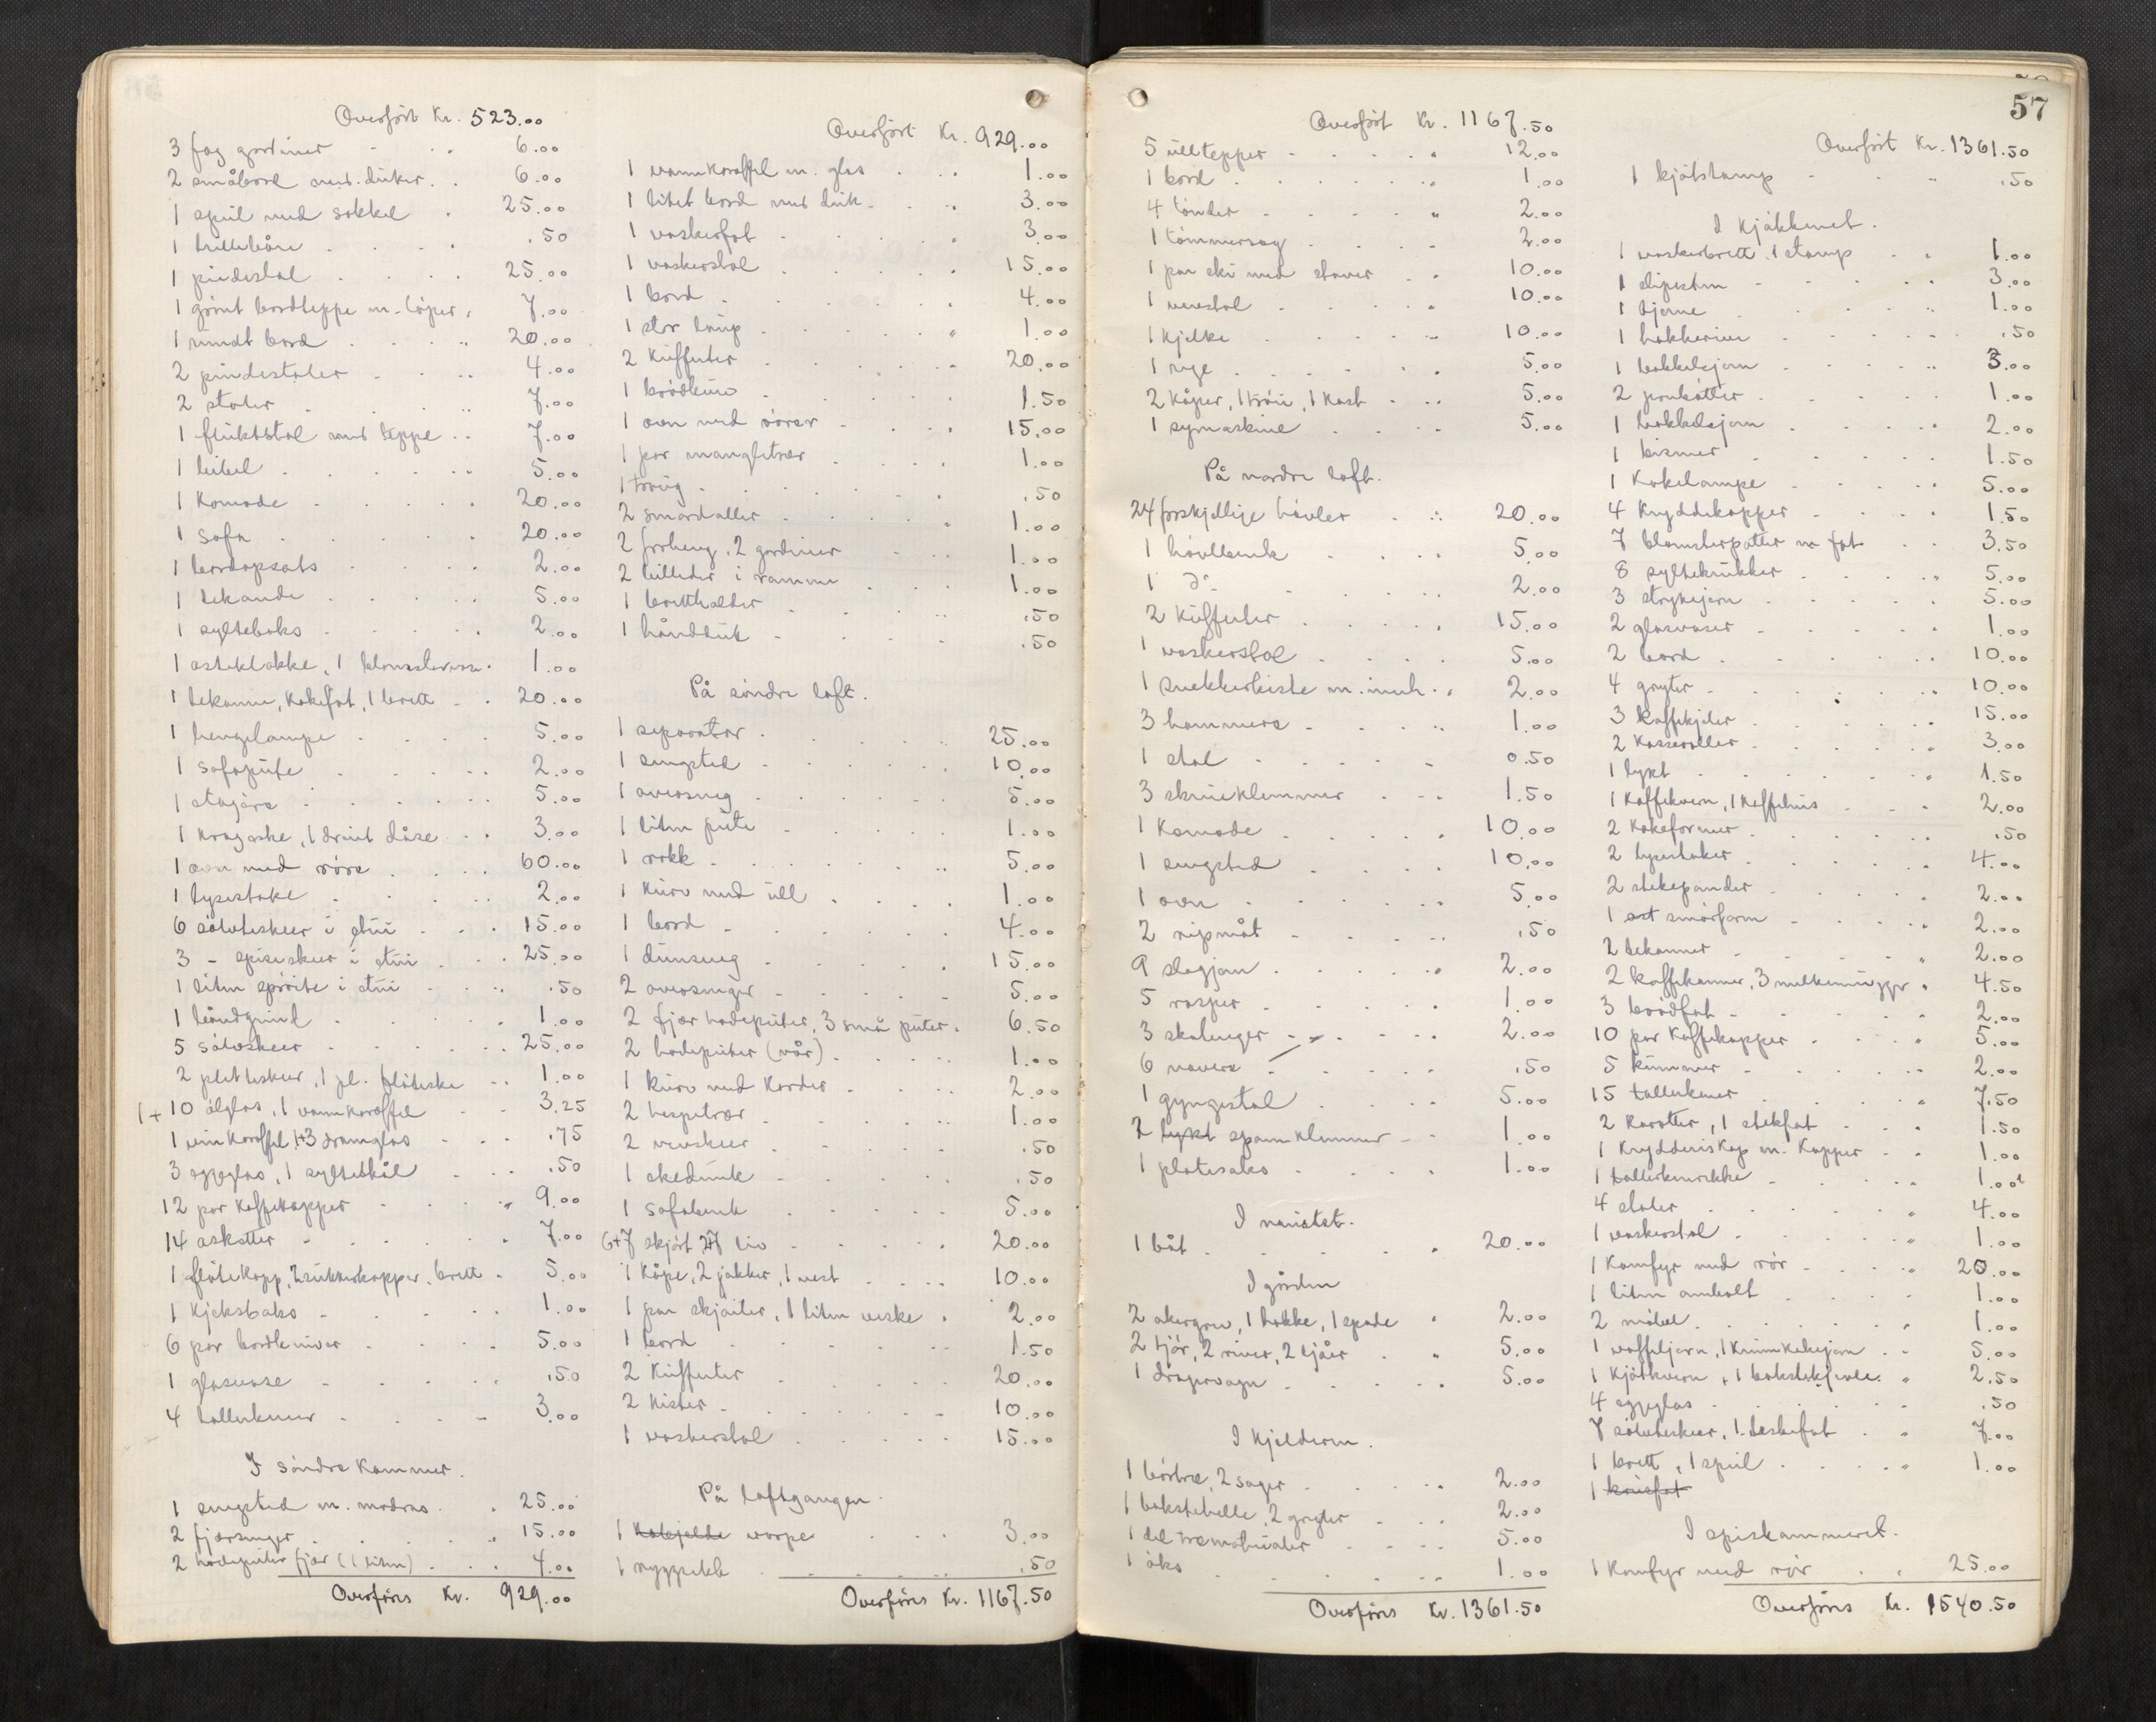 Overført Kr. 523.00
3 fag gardiner 6.00
2 småbord med duker 6.00
1 speil med sokkel 25.00
1 trillebåre .50
1 piedestal 25.00
1 grønt bordteppe m. løper 7.00
1 rundt bord 20.00
2 pindestoler 4.00
2 stoler 7.00
1 fluktstol med teppe 7.00
1 bibel 5.00
1 Komode 20.00
1 Sofa 20.00
1 bordopsats 2.00
1 tekande 5.00
1 sylteboks 2.00
1 osteklokke, 1 blomstervase 1.00
1 tekanne, Kakefat, 1 brett 20.00
1 hengelampe 5.00
1 sofapute 2.00
1 etajere 5.00
1 Krageske, 1 dåse 3.00
1 ovn med rører 60.00
1 lysestake 2.00
6 sølvteskeer i etui 15.00
3 - spiseskeer i etui 25.00
1 liten sprøite i etui .50
1 båndgrind 1.00
5 Sølvskeer 25.00
2 pletteskeer, 1 pl. fløteske 1.00
1+ 10 ølglas, 1 vannkaraffel 3.25
1 vinkaraffel, 1+3 dramglas .75
3 eggglas, 1 syltebhål .50
12 par Kaffekopper 9.00
14 asketter 7.00
1 fløtekopp, 2 sukkerkopper, brett 5.00
1 Kjeksboks 1.00
6 par bordkniver 5.00
1 glasvase .50
4 tallerkener 3.00
I søndre Kammer.
1 sengsted m. madras 25.00
2 fjærsenger 15.00
2 hodeputer fjær (1 liten) 4.00
Overføres Kr. 929.00
Overført Kr. 929.00
1 vannkaraffel m. glas 1.00
1 litet bord med duk 3.00
1 vaskefat 3.00
1 vaskerstol 15.00
1 bord 4.00
1 stor 1.00
2 Kufferter 20.00
1 brødkurv 1.50
1 ovn med rører 15.00
1 par mangletrær 1.00
1 traug .50
2 smørdaller 1.00
2 forheng, 2 gardiner 1.00
2 billeder i ramme 1.00
1 brettholder .50
1 håndduk .50
På søndre loft.
1 separator 25.00
1 sengsted 10.00
1 overseng 5.00
1 liten pute 1.00
1 rokk 5.00
1 Kurv med ull 1.00
1 bord 4.00
1 dunseng 15.00
2 oversenger 5.00
2 fjær hodeputer, 3 små puter 6.50
2 hodeputer (vår) 1.00
1 kurv med Karder 2.00
2 hespetrær 1.00
2 vevskeer .50
1 skedunk .50
1 sofabenk 5.00
6+7 skjørt, 2+7 liv 20.00
1 Kåpe, 2 jakker, 1 vest 10.00
1 par skjøiter, 1 liten veske 2.00
1 bord 1.50
2 Kufferter 20.00
2 Kister 10.00
1 vaskerstol 15.00
På loftgangen.
1 vorpe 3.00
1 ryggsekk .50
Overføres Kr. 1167.50
57
Overført Kr. 1167.50
5 ulltepper 12.00
1 bord 1.00
4 tønder 2.00
1 tømmersag 2.00
1 par ski med staver 10.00
1 vevstol 10.00
1 Kjelke 10.00
1 5.00
2 Kåper, 1 trøie, 1 Kast 5.00
1 symaskine 5.00
På nordre loft.
24 forskjellige høvler 20.00
1 høvlbenk 5.00
1 do 2.00
2 Kufferter 15.00
1 vaskerstol 5.00
1 snekkerkiste m. innh. 2.00
3 hammere 1.00
1 stol 0.50
3 skrueklemmer 1.50
1 Komode 10.00
1 sengsted 10.00
1 ovn 5.00
2 ripmåt .50
9 slagjern 2.00
5 rasper 1.00
3 skolenger 2.00
6 navere .50
1 gyngestol 5.00
2 lykt spannklemmer 1.00
1 platesaks 1.00
I naustet.
1 båt 20.00
I gården
2 akergrev, 1 hakke, 1 spade 2.00
2 tjør, 2 river, 2 ljåer 5.00
1 dragervogn 5.00
I Kjelderen.
1 bortræ, 2 sager 2.00
1 bakstehelle, 2 gryter 2.00
1 del trematerialer 5.00
1 øks 1.00
Overføres Kr. 1361.50
Overført Kr. 1361.50
1 kjøtstamp .50
I Kjøkkenet.
1 vaskebrett, 1 stamp 1.00
1 slipesten 3.00
1 kjerne 1.00
1 .50
1 bakkelsjern 3.00
2 1.00
1 bakkelsjern 2.00
1 bismer 1.50
1 Kokelampe 5.00
4 Kryddekopper 1.50
7 blomsterpotter m fat 3.50
8 syltekrukker 5.00
3 strykejern 5.00
2 glasvaser 1.00
2 bord 10.00
4 gryter 10.00
3 kaffekjeler 15.00
2 Kasseroller 3.00
1 lykt 1.50
1 Kaffekvern, 1 Kaffehus 2.00
2 Kakeformer .50
2 lysestaker 4.00
2 stekepander 2.00
1 smørform 2.00
2 tekanner 2.00
2 kaffekanner, 3 melkemugger 4.50
3 brødfat 2.00
10 par Kaffekopper 5.00
5 kummer 2.00
15 tallerkener 7.50
2 karotter, 1 stekfat 1.50
1 Krydderiskap m. Kopper 1.00
1 tallerkenrekke 1.00
4 stoler 4.00
1 vaskerstol 1.00
1 Komfyr med rør 20.00
1 liten ambolt 1.00
2 1.00
1 vaffeljern, 1 Krumkakejern 5.00
1 Kjøtkvern, 1 bakstekjevle 2.50
4 eggglas .50
7 sølvteskeer, 1 7.00
1 brett, 1 speil 1.00
1
I spiskammeret.
1 Komfyr med rør 25.00
Overføres Kr. 1540.50